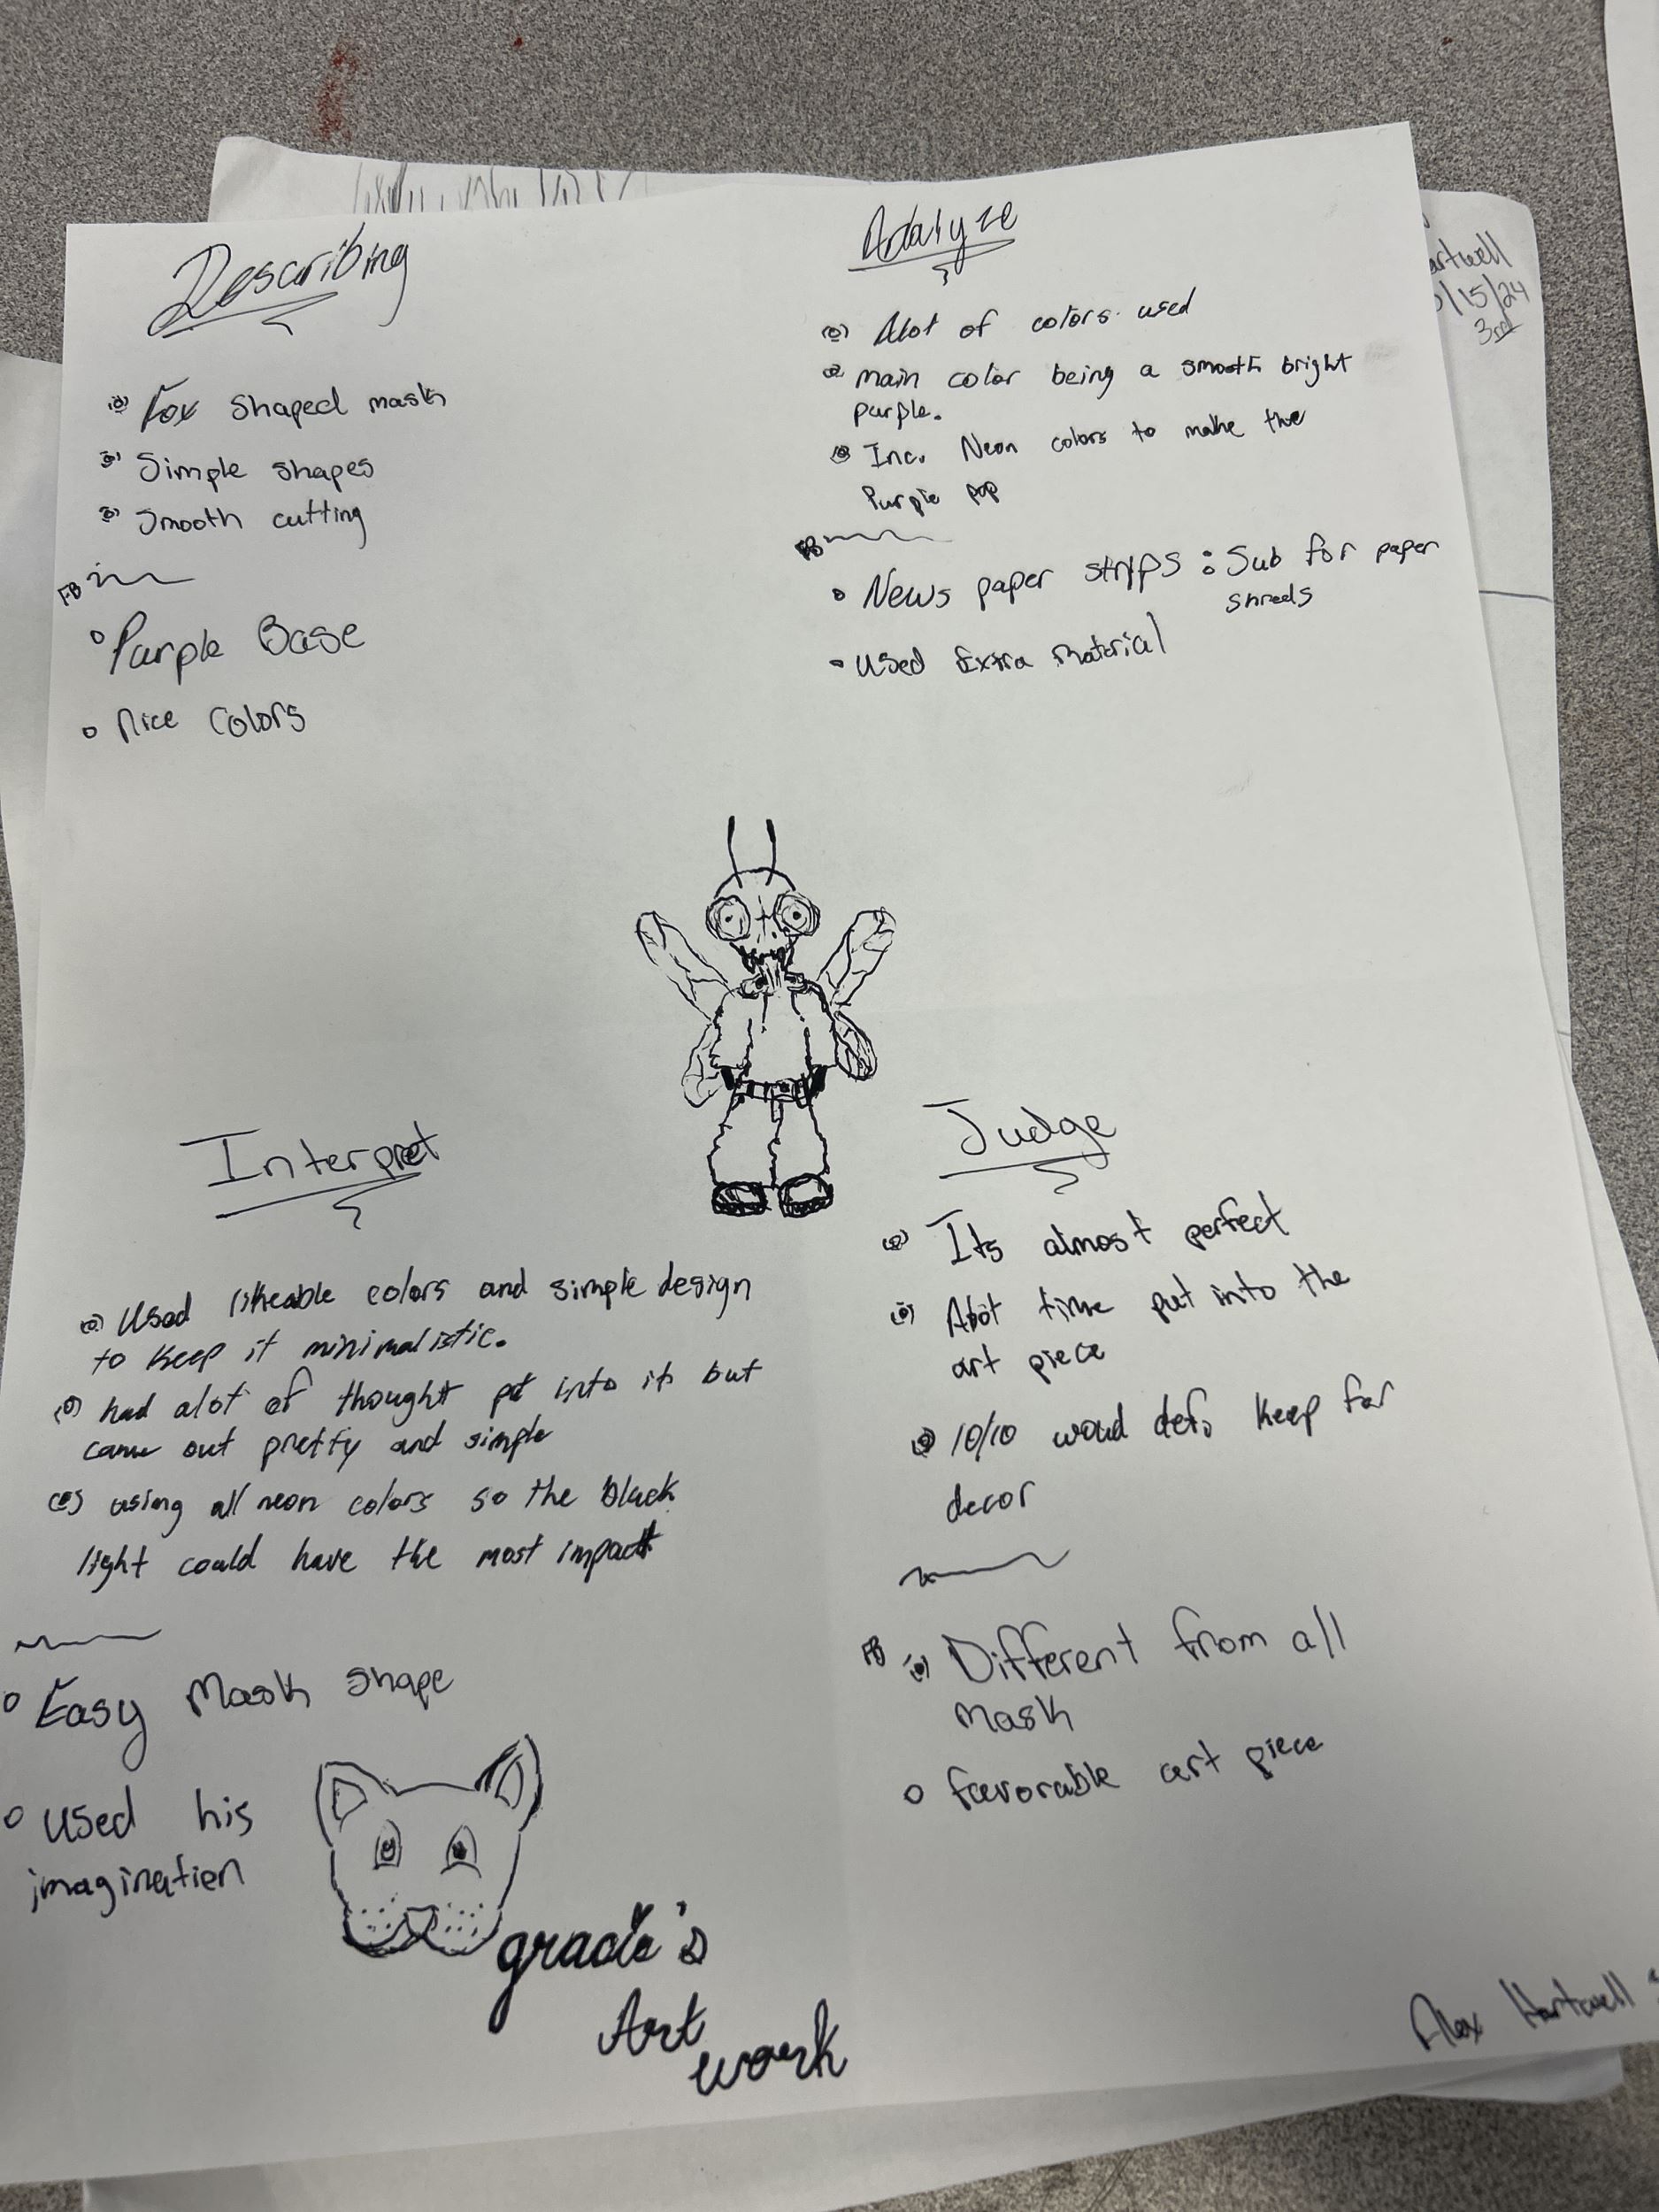 Describing
Fox shaped mask
Simple shapes
Smooth cutting
FB
Purple Base
Nice Colors
Analyze
Alot of colors used
main color being a smooth bright
purple.
Inc. Neon colors to make the
Purple pop
FB
News paper strips : Sub for paper
shreds
used Extra material
Interpret
Used likeable colors and simple design
to keep it minimalistic.
had alot of thought put into it but
came out pretty and simple
using all neon colors so the black
light could have the most impact
Easy Mask shape
used his
imagination
Judge
Its almost perfect
Alot time put into the
art piece
10/10 woud def. keep for
decor
FB Different from all
mask
favorable art piece
gracie's
Art
work
Alex Hartwell
artwell
/15/24
3rd